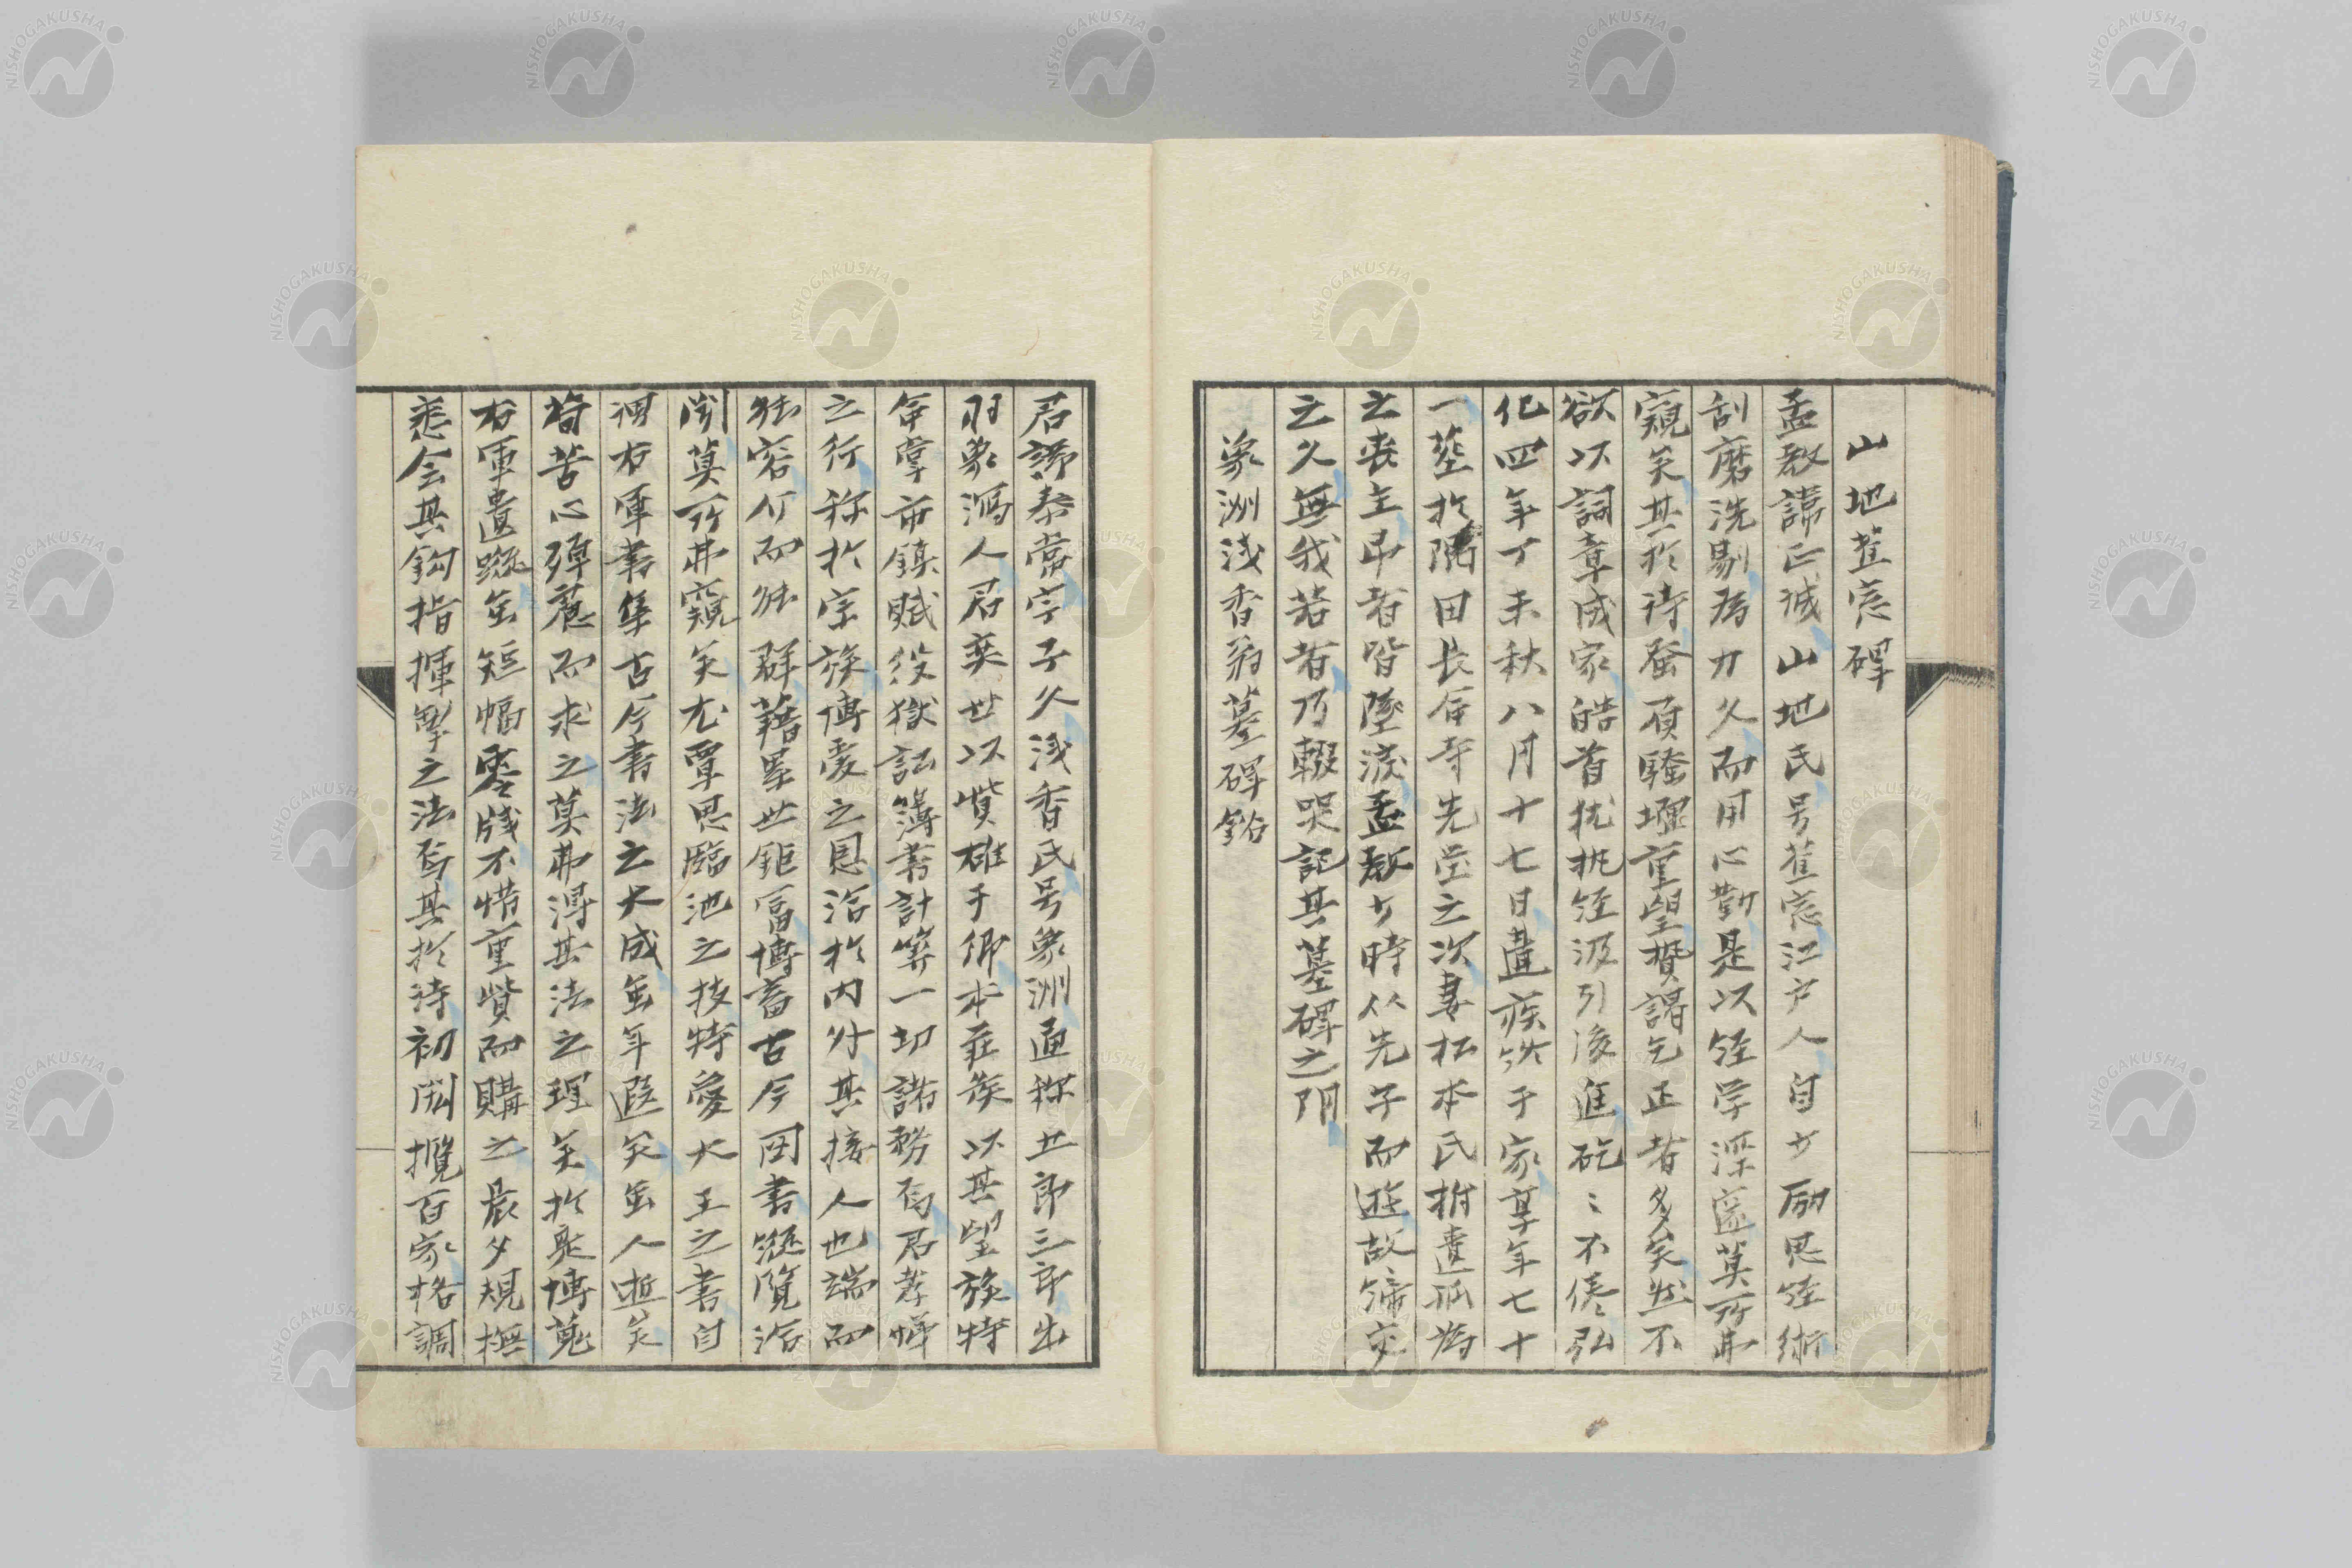 山地蕉窓碑
孟教諱正誠山地氏号蕉窓江戸人自少励思経術
刮磨洗剔為力久而用心勤是以経学深邃莫所弗
窺矣其於詩蚤頁騒壇重望贄謁乞正者多矣然不
欲以詞章成家皓首抗抗経汲引後進矻〻不倦弘
化四年丁未秋八月十七日遘疾終于家享年七十
一葬於隅田長命寺先塋之次妻松本氏拊遺孤為
之喪主弔者皆墜涙孟教少時从先子而遊故締交
之久無我若者乃輟哭記其墓碑之阴
象洲浅香翁墓碑銘
君諱泰常字子久浅香氏号象洲通称廿郎三郎出
羽象潟人君奕世以貲雄于郷本荘矦以其望族特
命掌市鎮賦役獄訟簿書計筭一切諸務焉君孝悌
之行称於宗族博愛之恩洽於内外其接人也端而
能容介而能群藉累世鉅富博蓄古今図書縦覧洽
閲莫所弗窺矣尤覃思臨池之技特愛大王之書自
謂右軍書集古今書法之大成雖年遐矣雖人逝矣
苟苦心殫慮而求之莫弗得其法之理矣於是博蒐
右軍遺蹤雖短幅零牋不惜重貲而購之晨夕規撫
悉会其鈎指揮掣之法焉其於詩初剧攬百家格調